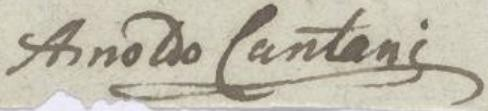 Arnoldo Cantani